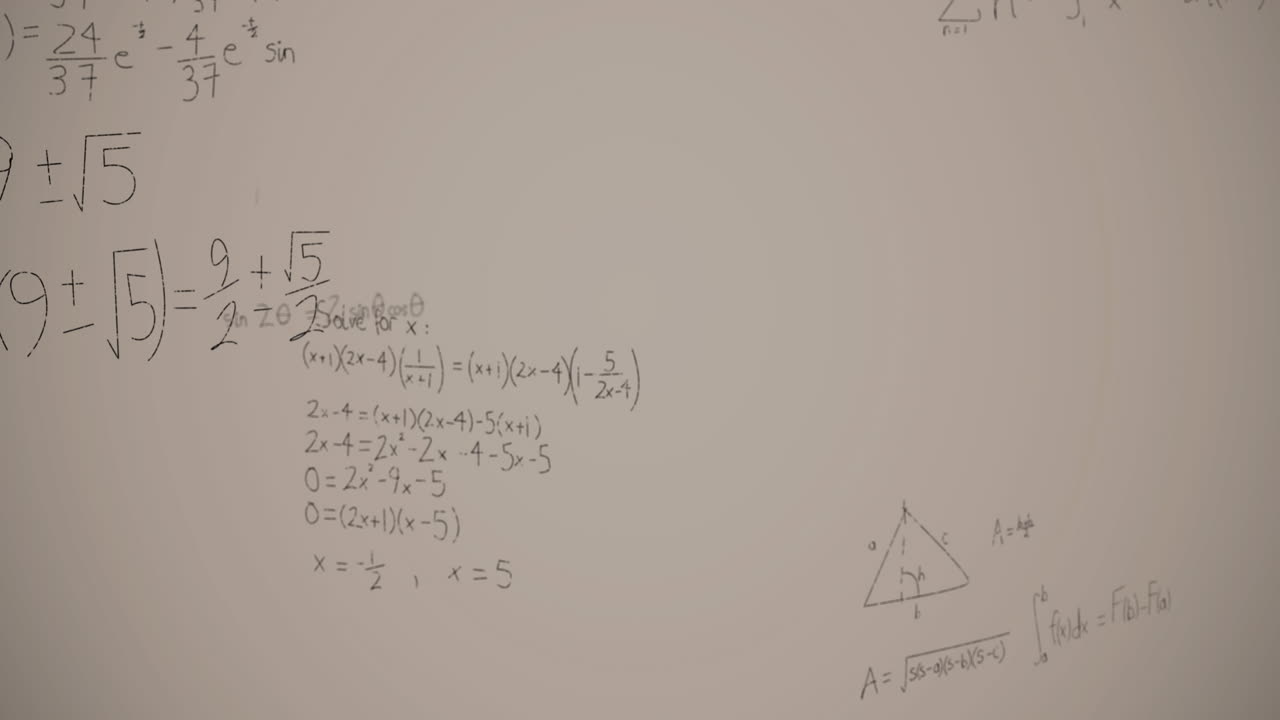 ) = 24/37 e^(-t/2) - 4/37 e^(-t/2) sin
9 ± √5
(9 ± √5) = 9/2 ± √5/2
sin 2θ = 2 sin θ cos θ
Solve for x:
(x+1)(2x-4)(1/(x+1)) = (x+1)(2x-4)(1 - 5/(2x-4))
2x-4=(x+1)(2x-4)-5(x+1)
2x-4=2x²-2x -4-5x-5
0=2x²-9x-5
0=(2x+1)(x-5)
x = -1/2 , x = 5
n=1
a c
h
b
A=
∫_a^b f(x)dx = F(b)-F(a)
A=√(s(s-a)(s-b)(s-c))